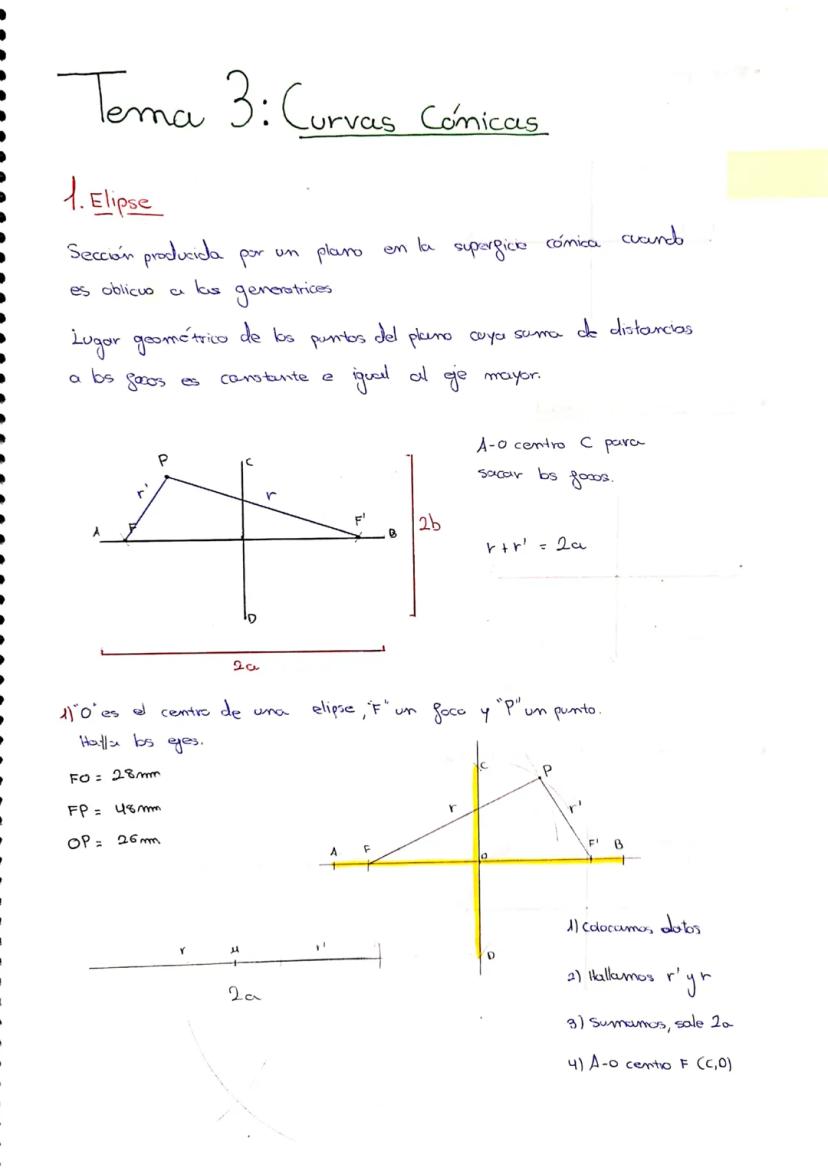 Tema 3: Curvas Cónicas
1. Elipse
Sección producida por un plano en la superficie cónica cuando
es oblicuo a las generatrices
Lugar geométrico de los puntos del plano cuya suma de distancias
a los focos es constante e igual al eje mayor.
A-O centro C para
sacar los focos.
r + r' = 2a
P
C
r'
r
A
F
F'
B
2b
D
2a
1) "O" es el centro de una elipse, "F" un foco y "P" un punto.
Halla los ejes.
FO = 28mm
FP = 48mm
OP = 26mm
C
P
r
r'
A
F
O
F'
B
D
r
M
r'
2a
1) Colocamos datos
2) Hallamos r' y r
3) Sumamos, sale 2a
4) A-O centro F (C,D)